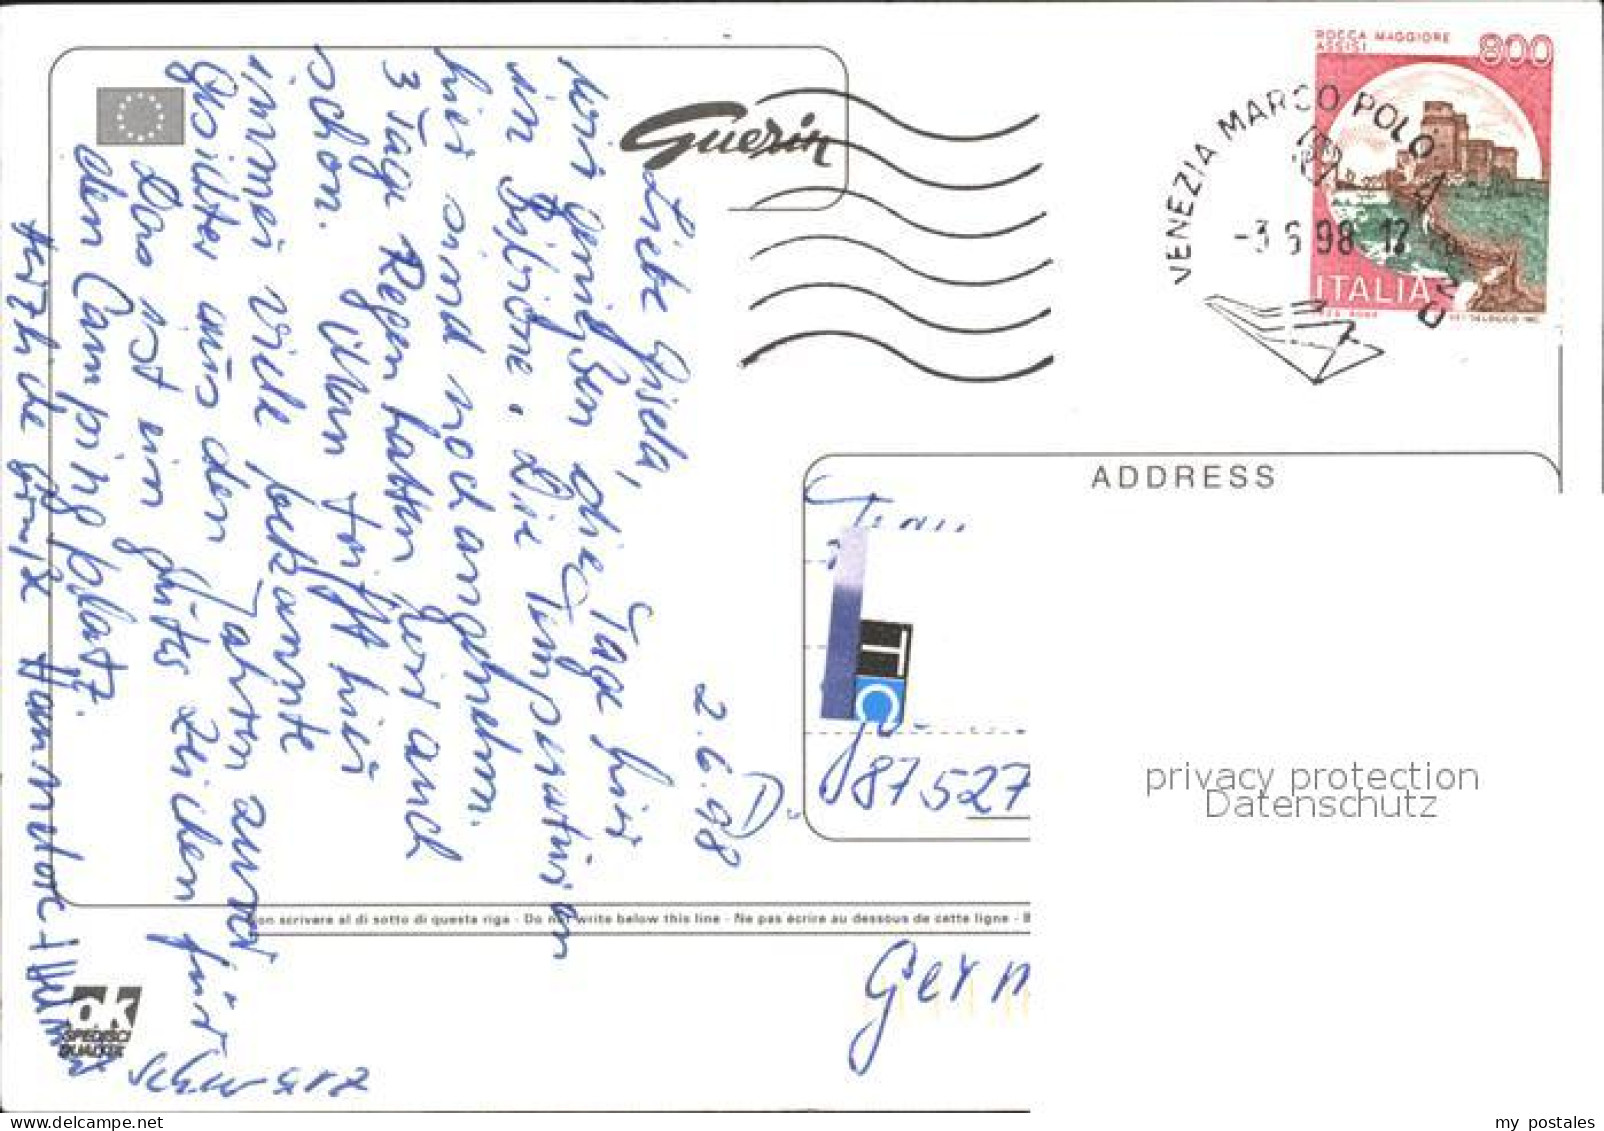 Guerin
ROCCA MAGGIORE
ASSISI
800
ITALIA
VENEZIA MARCO POLO
-3 6 98 17
2.6.98
Liebe Gisela,
wir genießen die Tage hier
in Bibione. Die Temperaturen
hier sind noch angenehm.
3 Tage Regen hatten wir auch
schon. Man trifft hier
immer viele bekannte
Gesichter aus den Jahren zuvor
Das ist ein gutes Zeichen für
den Campingplatz.
Herzliche Grüße Hannelore +
ADDRESS
D- 87527
Germ
Non scrivere al di sotto di questa riga - Do not write below this line - Ne pas écrire au dessous de cette ligne - B
ok
privacy protection
Datenschutz
my postales